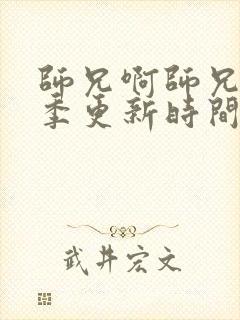 師兄啊師兄
季更新時間
武井宏文